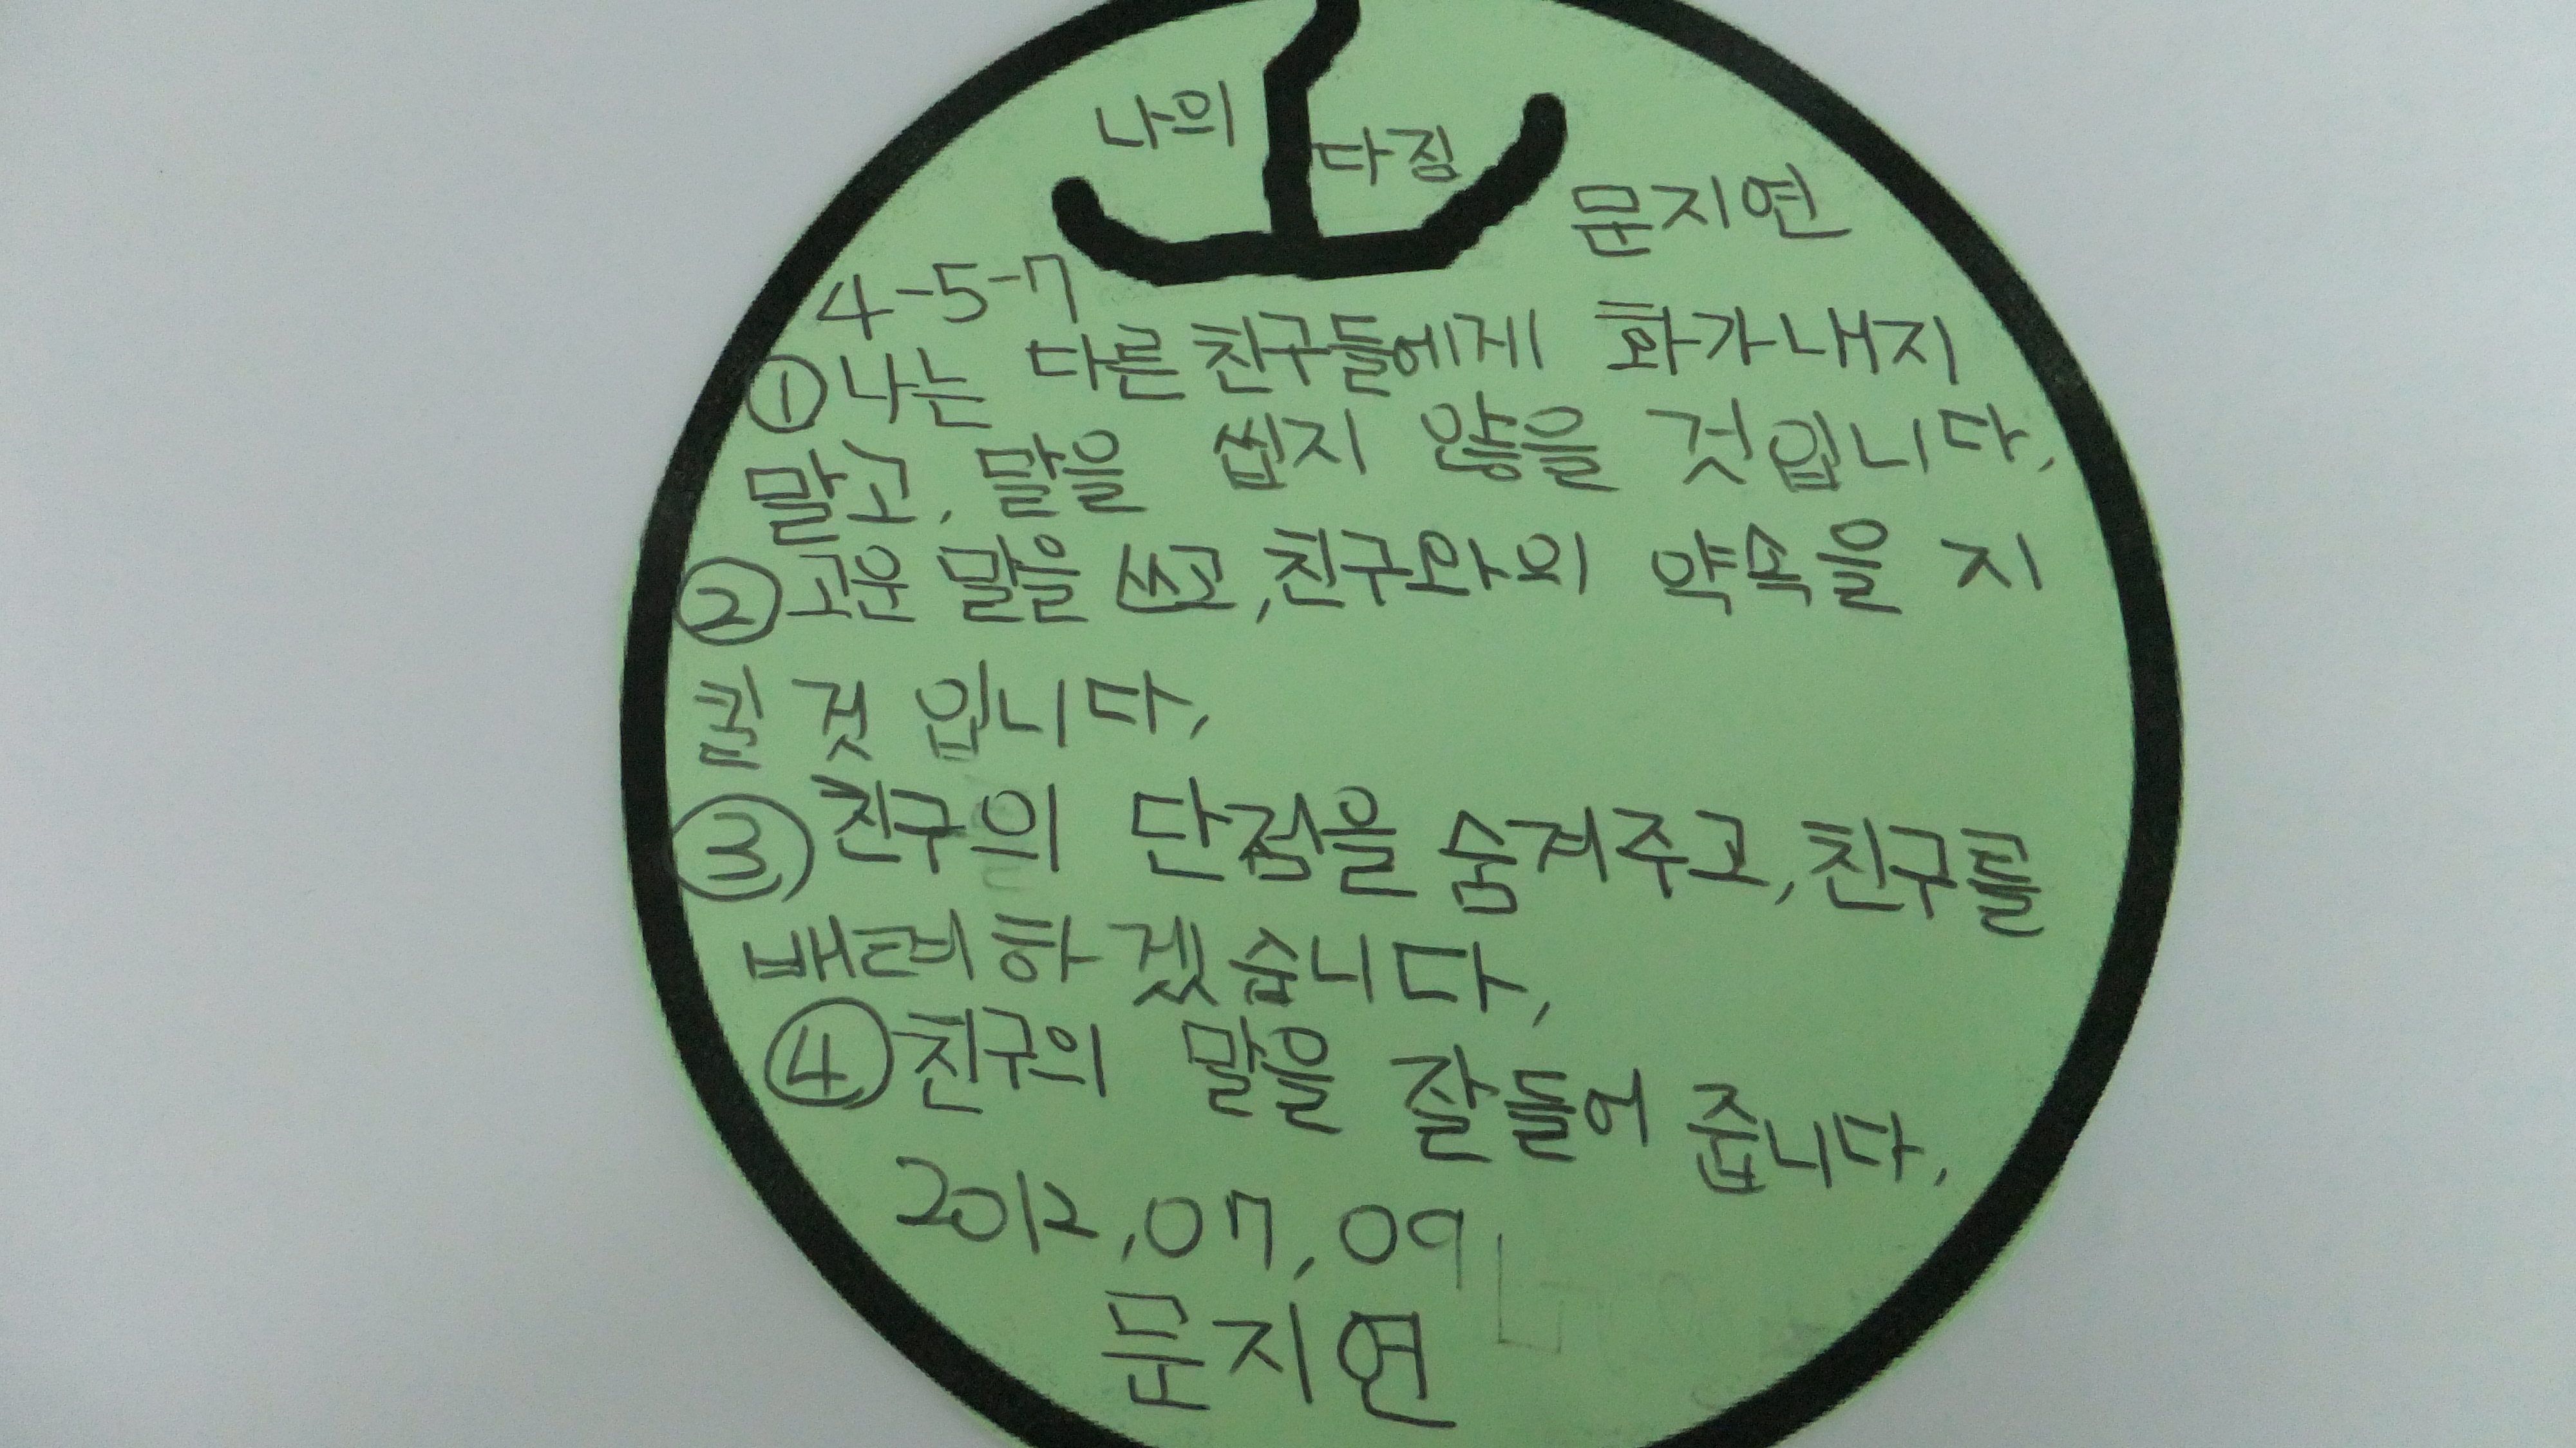 나의 다짐
문지연
4-5-7
① 나는 다른 친구들에게 화가내지
말고, 말을 씹지 않을 것입니다.
② 고운 말을 쓰고, 친구와의 약속을 지
킬 것 입니다.
③ 친구의 단점을 숨겨주고, 친구를
배려하겠습니다.
④ 친구의 말을 잘들어 줍니다.
2012.07.09
문지연